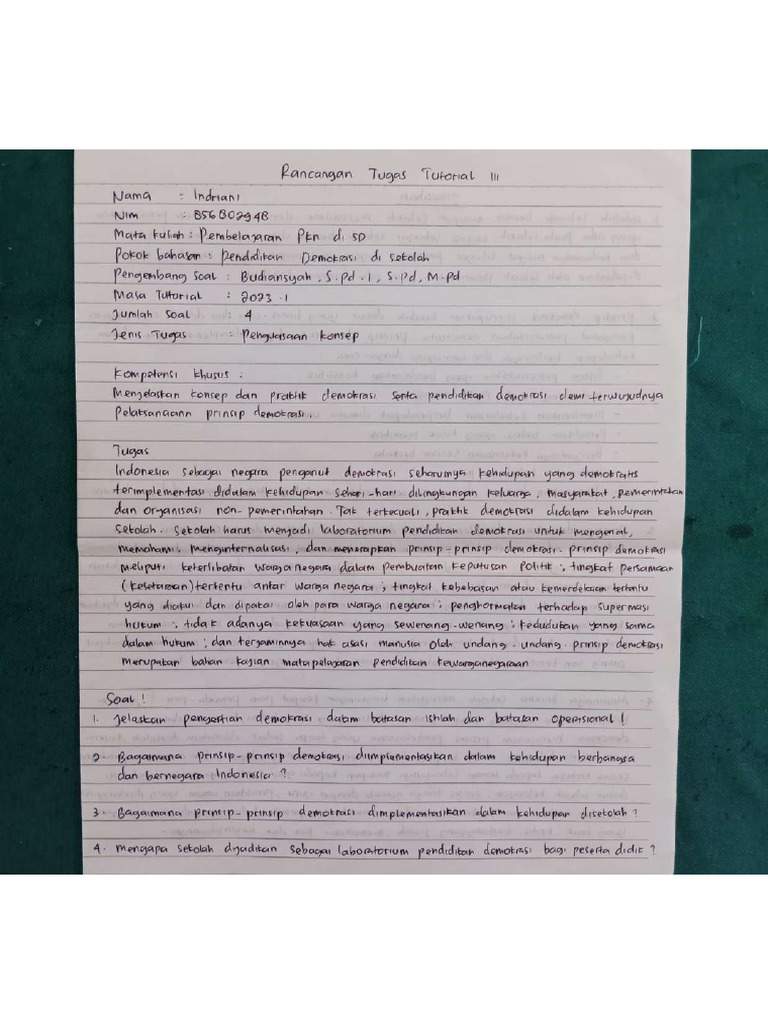 Rancangan Tugas Tutorial III
Nama : Indriani
Nim : 856802948
Mata Kuliah : Pembelajaran PKn di SD
Pokok bahasan : Pendidikan Demokrasi di sekolah
Pengembang Soal : Budiansyah, S.Pd.I, S.Pd, M.Pd
Masa Tutorial : 2023.1
Jumlah Soal : 4
Jenis Tugas : Penguasaan Konsep
Kompetensi Khusus :
Menjelaskan konsep dan praktik demokrasi serta pendidikan demokrasi demi terwujudnya
Pelaksanaann prinsip demokrasi.
Tugas
Indonesia sebagai negara penganut demokrasi seharusnya kehidupan yang demokratis
terimplementasi didalam kehidupan sehari-hari dilingkungan keluarga, masyarakat, pemerintahan
dan organisasi non-pemerintahan. Tak terkecuali, praktik demokrasi didalam kehidupan
sekolah. Sekolah harus menjadi laboratorium pendidikan demokrasi untuk mengenal,
memahami, menginternalisasi, dan menerapkan prinsip-prinsip demokrasi. prinsip demokrasi
meliputi keterlibatan warga negara dalam pembuatan keputusan politik ; tingkat persamaan
(kesetaraan) tertentu antar warga negara ; tingkat kebebasan atau kemerdekaan tertentu
yang diakui dan dipakai oleh para warga negara ; penghormatan terhadap supermasi
hukum ; tidak adanya kekuasaan yang sewenang-wenang ; kedudukan yang sama
dalam hukum ; dan terjaminnya hak asasi manusia oleh undang-undang. prinsip demokrasi
merupakan bahan kajian mata pelajaran pendidikan kewarganegaraan
Soal !
1. Jelaskan pengertian demokrasi dalam batasan istilah dan batasan operasional !
2. Bagaimana prinsip-prinsip demokrasi diimplementasikan dalam kehidupan berbangsa
dan bernegara Indonesia ?
3. Bagaimana prinsip-prinsip demokrasi dimplementasikan dalam kehidupan disekolah ?
4. mengapa sekolah dijadikan sebagai laboratorium pendidikan demokrasi bagi peserta didik ?